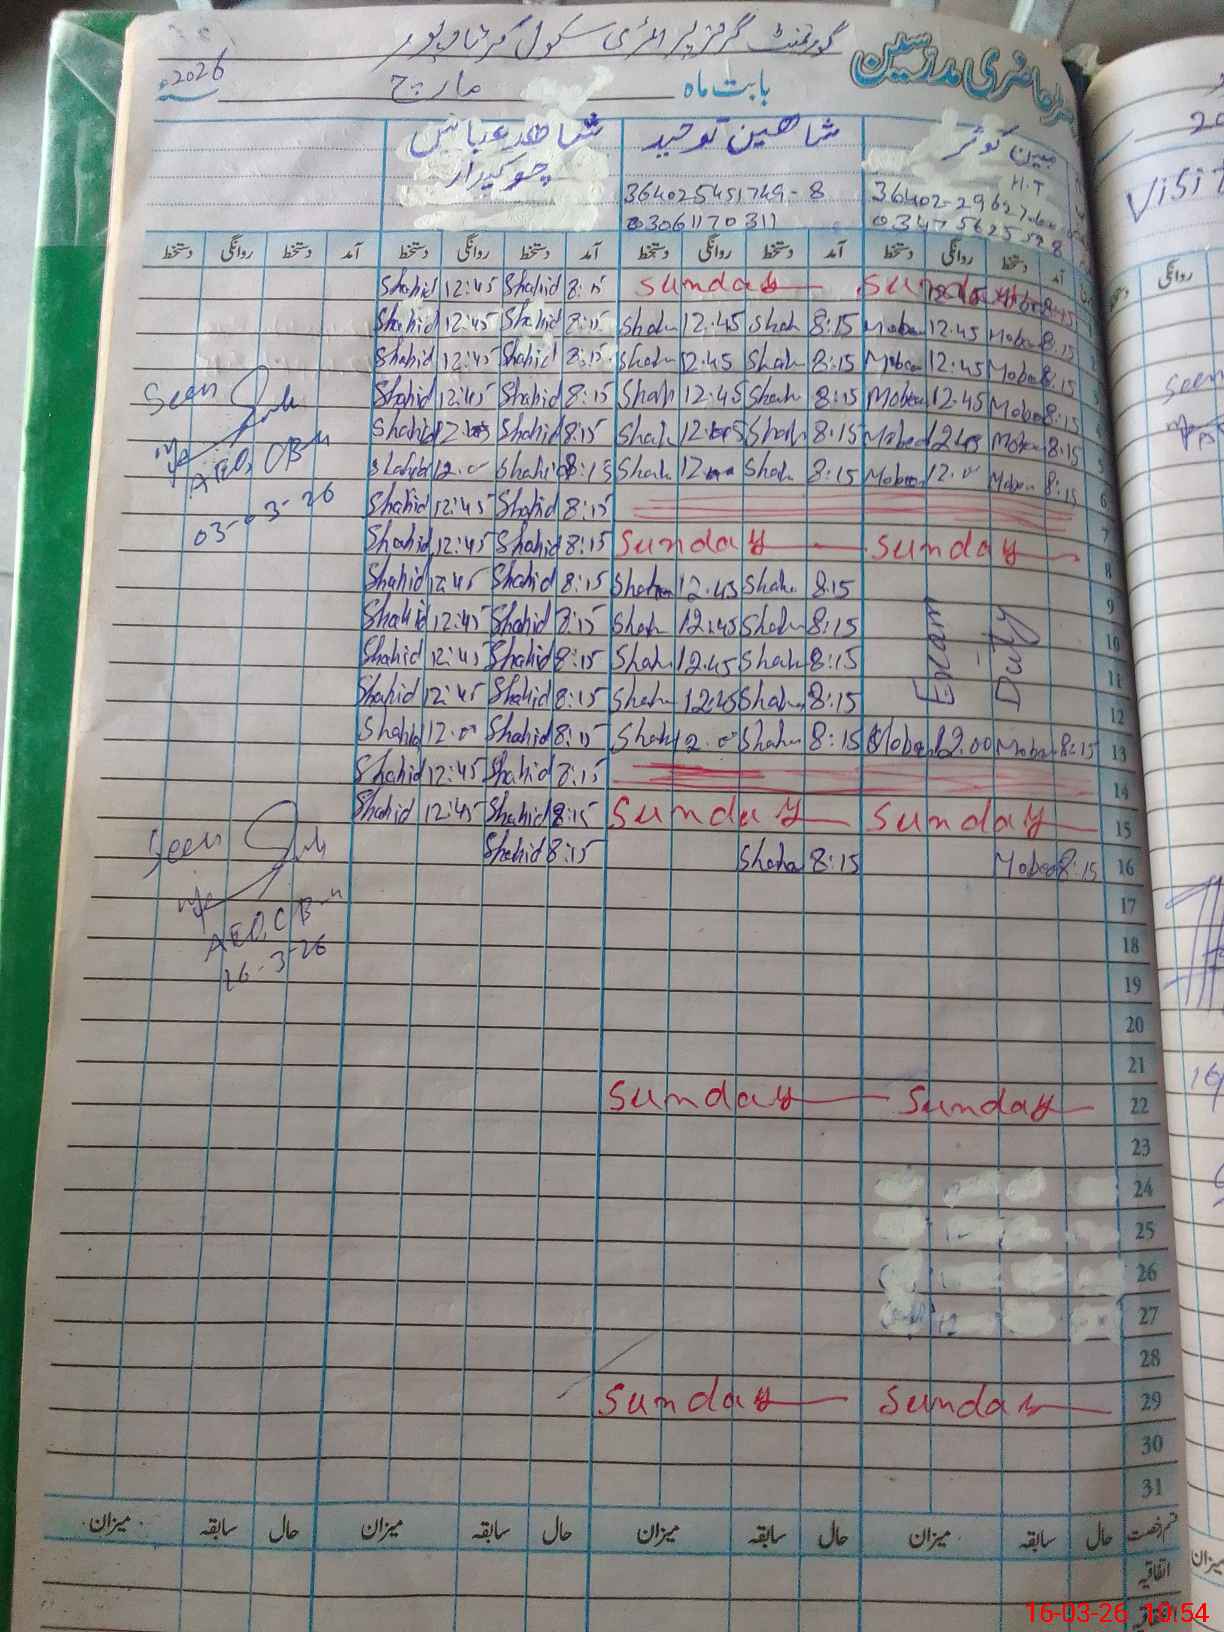 گورنمنٹ گرلز پرائمری سکول
رجسٹر حاضری مدرسین
بابت ماہ مارچ 2026
مبین کوثر شاھین توحید شاھد عباس
H.T چوکیدار
36402-29627 364025451749-8
03061170311
آمد دستخط روانگی دستخط آمد دستخط روانگی دستخط آمد دستخط روانگی دستخط آمد دستخط روانگی دستخط
Shahid 12:45 Shahid 8:15 Sunday Sunday 8:15
Shahid 12:45 Shahid 8:15 Shah 12.45 Shah 8:15 Mobeen 12.45 Mobeen 8:15
Shahid 12:45 Shahid 8:15 Shah 12.45 Shah 8:15 Mobeen 12:45 Mobeen 8:15
Shahid 12:45 Shahid 8:15 Shah 12.45 Shah 8:15 Mobeen 12.45 Mobeen 8:15
Shahid Shahid 8:15 Shah Shah 8:15 Mobeen 1245 Mobeen 8:15 5
Shahid 12.0 Shahid 8:15 Shah Shah 8:15 Mobeen 12.0 Mobeen 8:15 6
Shahid 12:45 Shahid 8:15 7
Shahid 12:45 Shahid 8:15 Sunday Sunday 8
Shahid 12:45 Shahid 8:15 Shah 12.45 Shah 8:15 9
Shahid 12:45 Shahid 8:15 Shah 12:45 Shah 8:15 10
Shahid 12:45 Shahid 8:15 Shah 12.45 Shah 8:15 11
Shahid 12:45 Shahid 8:15 Shah 12:45 Shah 8:15 12
Exam Duty
Shahid 12.00 Shahid 8:15 Shah 12.0 Shah 8:15 Mobeen 12.00 Mobeen 8:15 13
Shahid 12:45 Shahid 8:15 14
Shahid 12:45 Shahid 8:15 Sunday Sunday 15
Shahid 8:15 Shaha 8:15 Mobeen 8:15 16
17
18
19
20
21
Sunday Sunday 22
23
24
25
26
27 12
28
Sunday Sunday 29
30
31
Seen
AEO, CB
03-03-26
Seen
AEO, CB
16-3-26
قسم رخصت حال سابقہ میزان حال سابقہ میزان حال سابقہ میزان حال سابقہ میزان
اتفاقیہ
میزان
20
Visit
روانگی
Seen
16
16-03-26 10:54